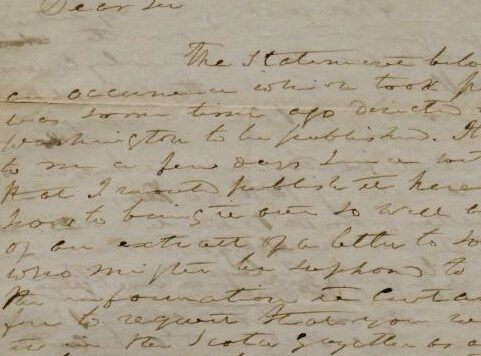 Dear Sir
The Statement belo
an occurrence which took p
was some time ago directed
Washington to be published. It
to me a few days since wit
that I would publish it here
how to bring it out so well a
of an extract of a letter to so
who might be supposed to
the information it conta
fore to request that you w
it in the Scioto Gazette as a